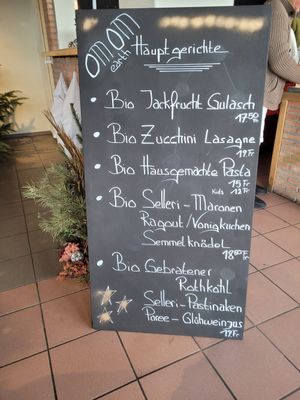 OM OM
earth
Hauptgerichte
• Bio Jackfrucht Gulasch
17.50
• Bio Zucchini Lasagne
19.Fr
• Bio Hausgemachte Pasta
15 Fr
Kids 12 Fr
• Bio Selleri-Maronen
Ragout/Honigkuchen
Semmelknödel
18.50 Fr
• Bio Gebratener
Rothkohl
Selleri-Pastinaken
Püree-Glühweinjus
19.Fr